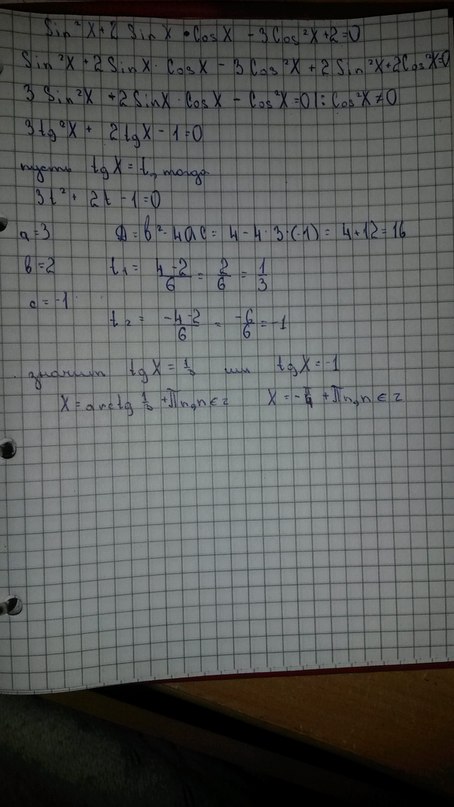 Sin²X+2 SinX·CosX -3Cos²X+2=0
Sin²X+2SinX·CosX-3Cos²X+2Sin²X+2Cos²X=0
3Sin²X+2SinX·CosX-Cos²X=0|:Cos²X≠0
3tg²X+2tgX-1=0
пусть tgX=t, тогда
3t²+2t-1=0
a=3 D=b²-4ac=4-4·3·(-1)=4+12=16
b=2 t₁=4-2/6=2/6=1/3
c=-1
t₂=-4-2/6=-6/6=-1
значит tgX=1/3 или tgX=-1
X=arctg 1/3+Πn,n∈z X=-Π/4+Πn,n∈z